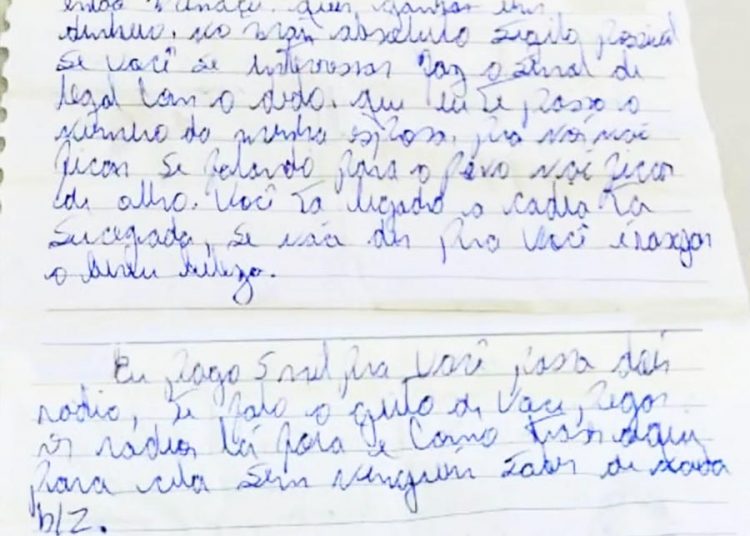 dinheiro, no mais absoluto sigilo pessoal
se você se interessar faz o sinal de
legal com o dedo, que eu te passo o
número da minha esposa, pra nós não
ficar se falando para o povo não ficar
de olho. Você ta ligado a cadia ta
sucegada, se não der pra você
o bem beleza.
Eu pago 5 mil pra você passa dois
radio, te falo o geito de você pegar
os radios lá fora e como
para cela sem ninguém saber de nada
blz.